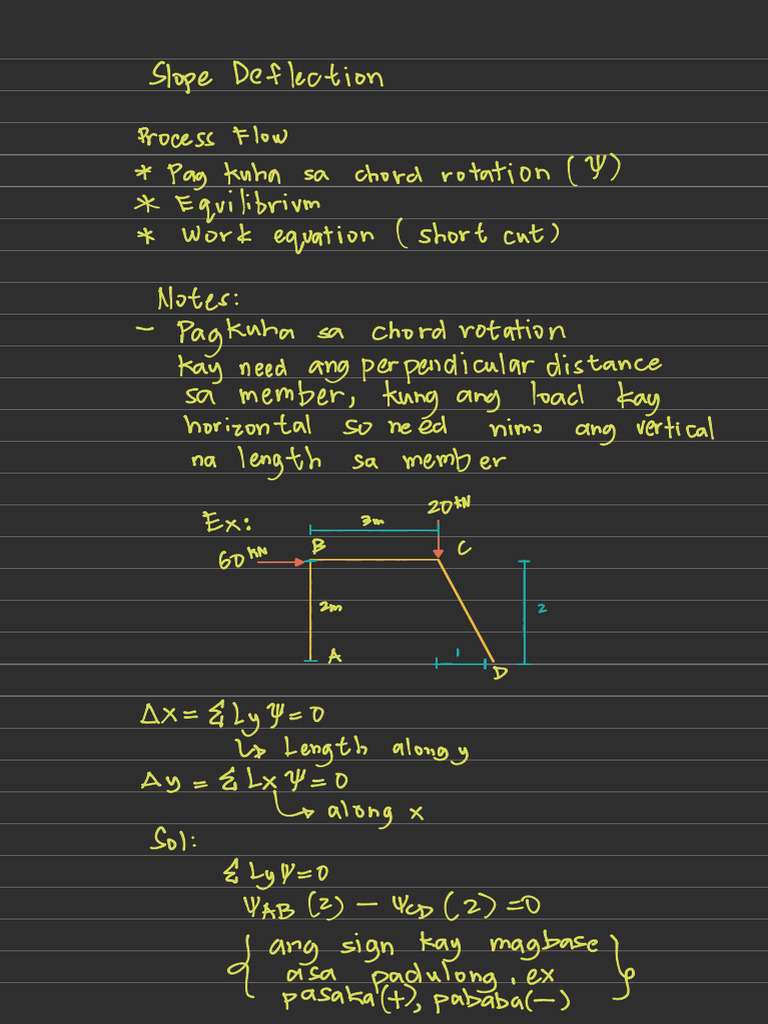 Slope Deflection
Process Flow
* Pag kuha sa chord rotation (Ψ)
* Equilibrium
* Work equation (short cut)
Notes:
- Pagkuha sa chord rotation
kay need ang perpendicular distance
sa member, kung ang load kay
horizontal so need nimo ang vertical
na length sa member
20kN
Ex:
3m
B
C
60kN
2m
2
A
1
D
Δx = ΣLyΨ=0
↳ Length along y
Δy = ΣLxΨ=0
↳ along x
Sol:
ΣLyΨ=0
ΨAB (2) - ΨCD (2) =0
{ ang sign kay magbase
asa padulong. ex
pasaka(+), pababa(-) }